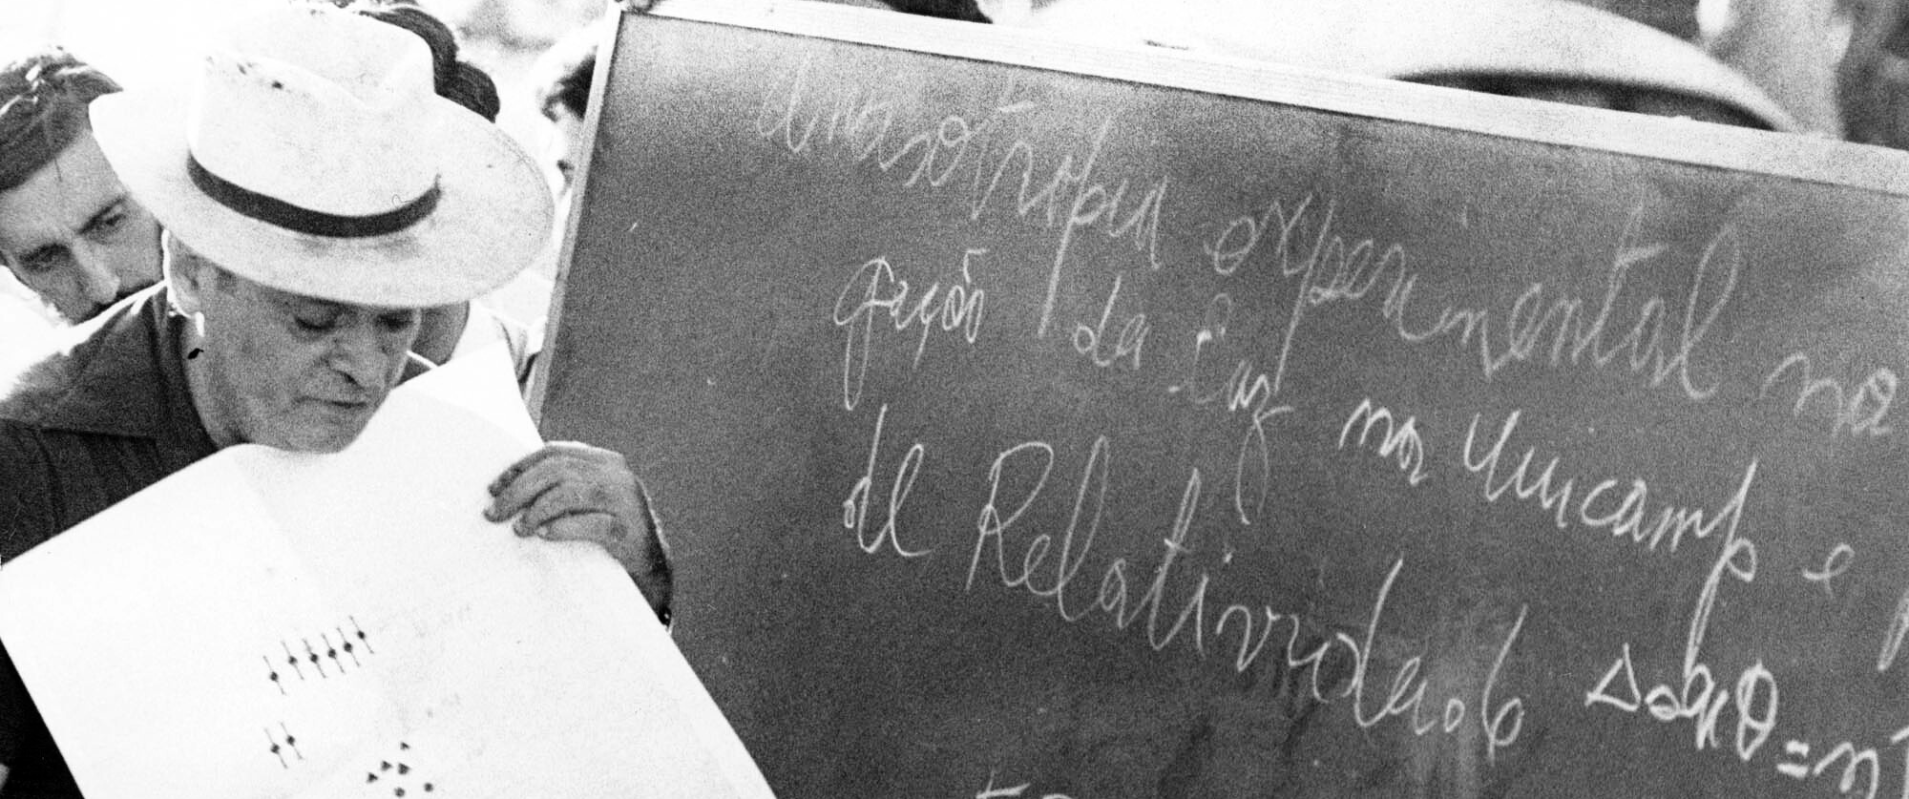 Anasotropia experimental na
gação da luz na Unicamp e
de Relatividade